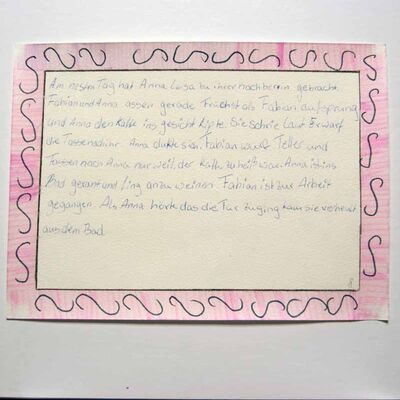 Am nestn Tag hat Anna Lusa zu ihrer nachberein gebracht.
Fabian und Anna assen gerade Früchst als Fabian aufsprung
und Anna den Kaffe ins gesicht kipte. Sie schrie Laut Er warf
die Tasse nach ihr. Anna dukte sich. Fabian warf Teller und
Tassen nach Anna nur weil der Kaffe zu heiß war. Anna ist ins
Bad gerant und fing an zu weinen. Fabian ist zur Arbeit
gegangen. Als Anna hörte das die Tür zuging kam sie verheult
aus dem Bad.
8